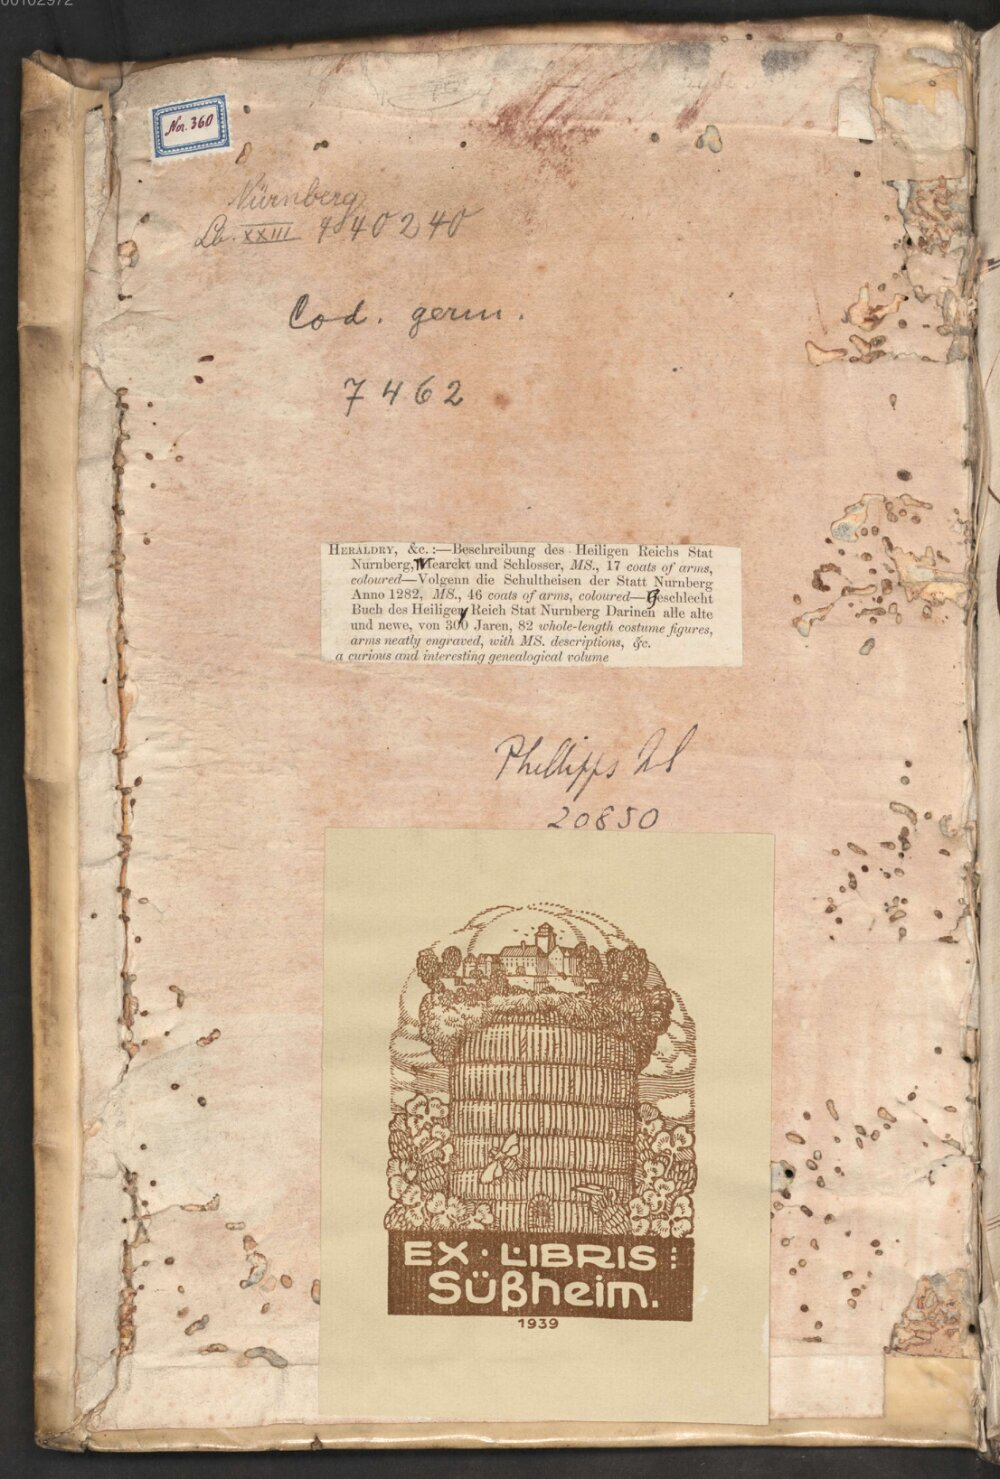 00102972
Nor. 360
Nürnberg
XXIII 4°40240
Cod. germ.
7462
HERALDRY, &c. :—Beschreibung des Heiligen Reichs Stat
Nurnberg, Mearckt und Schlosser, MS., 17 coats of arms,
coloured—Volgenn die Schultheisen der Statt Nurnberg
Anno 1282, MS., 46 coats of arms, coloured—Geschlecht
Buch des Heiligen Reich Stat Nurnberg Darinen alle alte
und newe, von 300 Jaren, 82 whole-length costume figures,
arms neatly engraved, with MS. descriptions, &c.
a curious and interesting genealogical volume
Phillipps MS
20850
EX · LIBRIS :
Süßheim.
1939